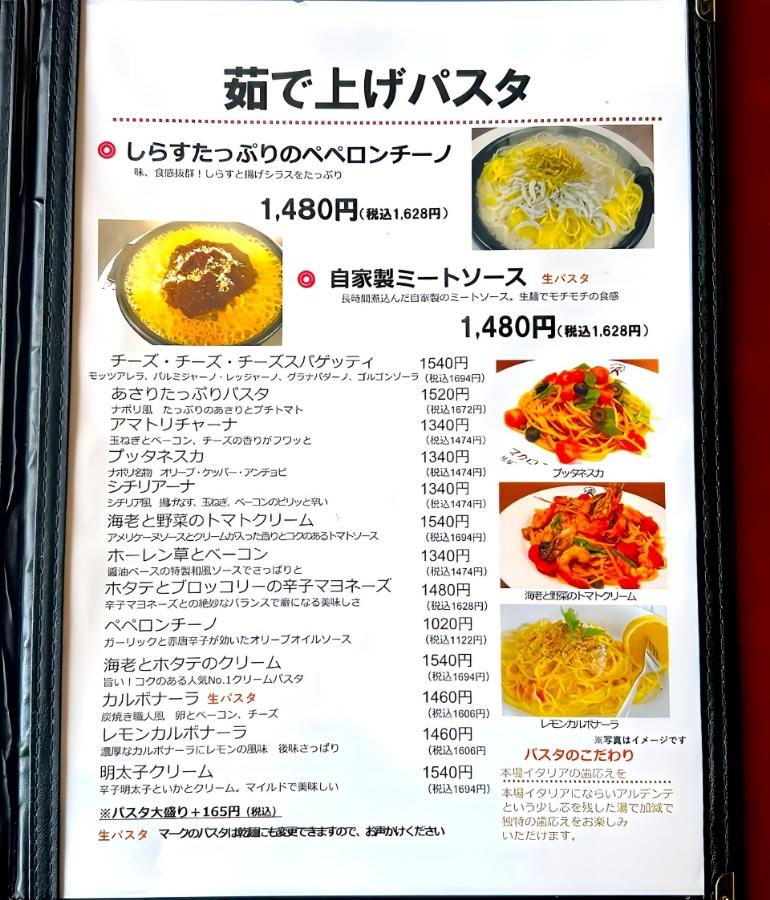 茹で上げパスタ
しらすたっぷりのペペロンチーノ
味、食感抜群！しらすと揚げシラスをたっぷり
1,480円(税込1,628円)
自家製ミートソース 生パスタ
長時間煮込んだ自家製のミートソース。生麺でモチモチの食感
1,480円(税込1,628円)
チーズ・チーズ・チーズスパゲッティ 1540円
モッツアレラ、パルミジャーノ・レッジャーノ、グラナパダーノ、ゴルゴンゾーラ (税込1694円)
あさりたっぷりパスタ 1520円
ナポリ風 たっぷりのあさりとプチトマト (税込1672円)
アマトリチャーナ 1340円
玉ねぎとベーコン、チーズの香りがフワッと (税込1474円)
プッタネスカ 1340円
ナポリ名物 オリーブ・ケッパー・アンチョビ (税込1474円)
シチリアーナ 1340円
シチリア風 揚げなす、玉ねぎ、ベーコンのピリッと辛い (税込1474円)
海老と野菜のトマトクリーム 1540円
アメリケーヌソースとクリームが入った香りとコクのあるトマトソース (税込1694円)
ホーレン草とベーコン 1340円
醤油ベースの特製和風ソースでさっぱりと (税込1474円)
ホタテとブロッコリーの辛子マヨネーズ 1480円
辛子マヨネーズとの絶妙なバランスで癖になる美味しさ (税込1628円)
ペペロンチーノ 1020円
ガーリックと赤唐辛子が効いたオリーブオイルソース (税込1122円)
海老とホタテのクリーム 1540円
旨い！コクのある人気No.1クリームパスタ (税込1694円)
カルボナーラ 生パスタ 1460円
炭焼き職人風 卵とベーコン、チーズ (税込1606円)
レモンカルボナーラ 1460円
濃厚なカルボナーラにレモンの風味 後味さっぱり (税込1606円
明太子クリーム 1540円
辛子明太子といかとクリーム。マイルドで美味しい (税込1694円)
※パスタ大盛り＋165円（税込）
生パスタ マークのパスタは乾麺にも変更できますので、お声かけください
プッタネスカ
海老と野菜のトマトクリーム
レモンカルボナーラ
※写真はイメージです
パスタのこだわり
本場イタリアの歯応えを
本場イタリアにならいアルデンテ
という少し芯を残した湯で加減で
独特の歯応えをお楽しみ
いただけます。